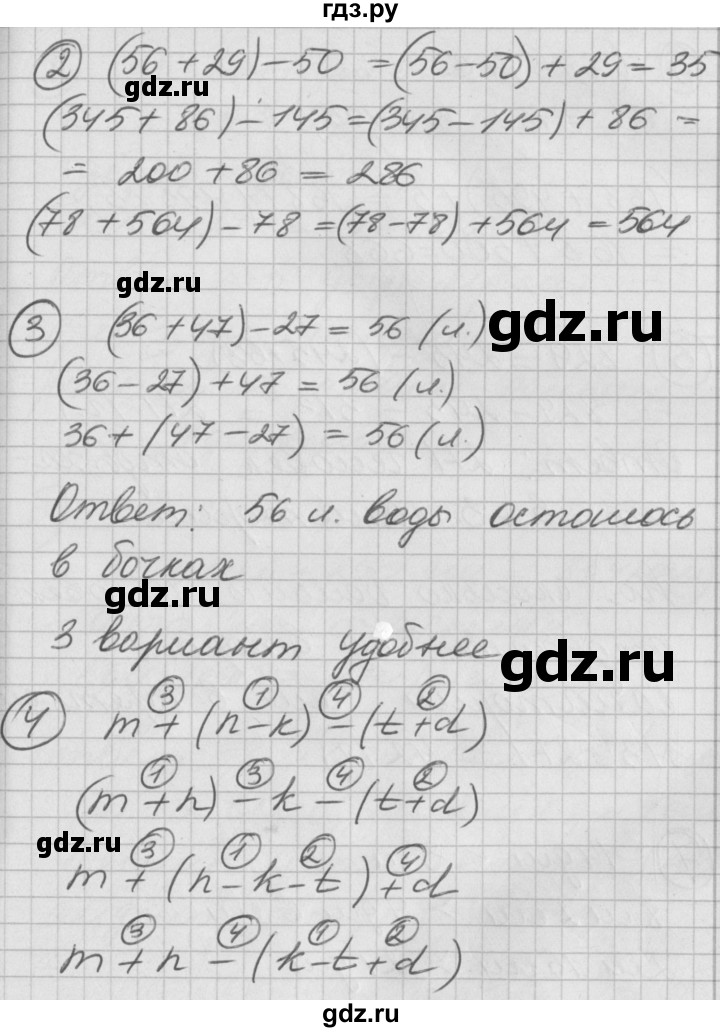 гдз.ру
② (56 + 29) - 50 = (56 - 50) + 29 = 35
gdz.ru
(345 + 86) - 145 = (345 - 145) + 86 =
= 200 + 86 = 286
(78 + 564) - 78 = (78 - 78) + 564 = 564
gdz.ru
③ (36 + 47) - 27 = 56 (л.)
gdz.ru
(36 - 27) + 47 = 56 (л.)
36 + (47 - 27) = 56 (л.)
Ответ: 56 л. воды осталось
в бочках
gdz.ru
3 вариант удобнее
gdz.ru
③ ① ④ ②
④ m + (n - k) - (t + d)
① ③ ④ ②
(m + n) - k - (t + d)
gdz.ru
③ ① ② ④
m + (n - k - t) + d
③ ④ ① ②
m + n - (k - t + d)
gdz.ru
gdz.ru